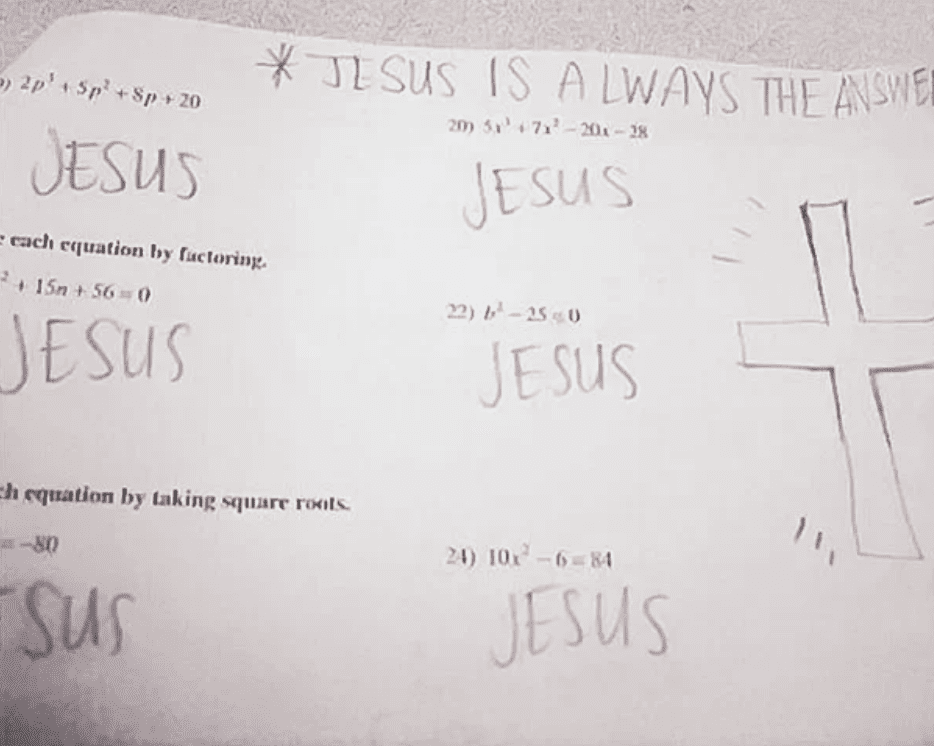 * JESUS IS ALWAYS THE ANSWE
) 2p³ + 5p² + 8p + 20
JESUS
20) 5x³ + 7x² – 20x – 28
JESUS
e each equation by factoring.
² + 15n + 56 = 0
JESUS
22) b² – 25 = 0
JESUS
ch equation by taking square roots.
= –80
ESUS
24) 10x² – 6 = 84
JESUS